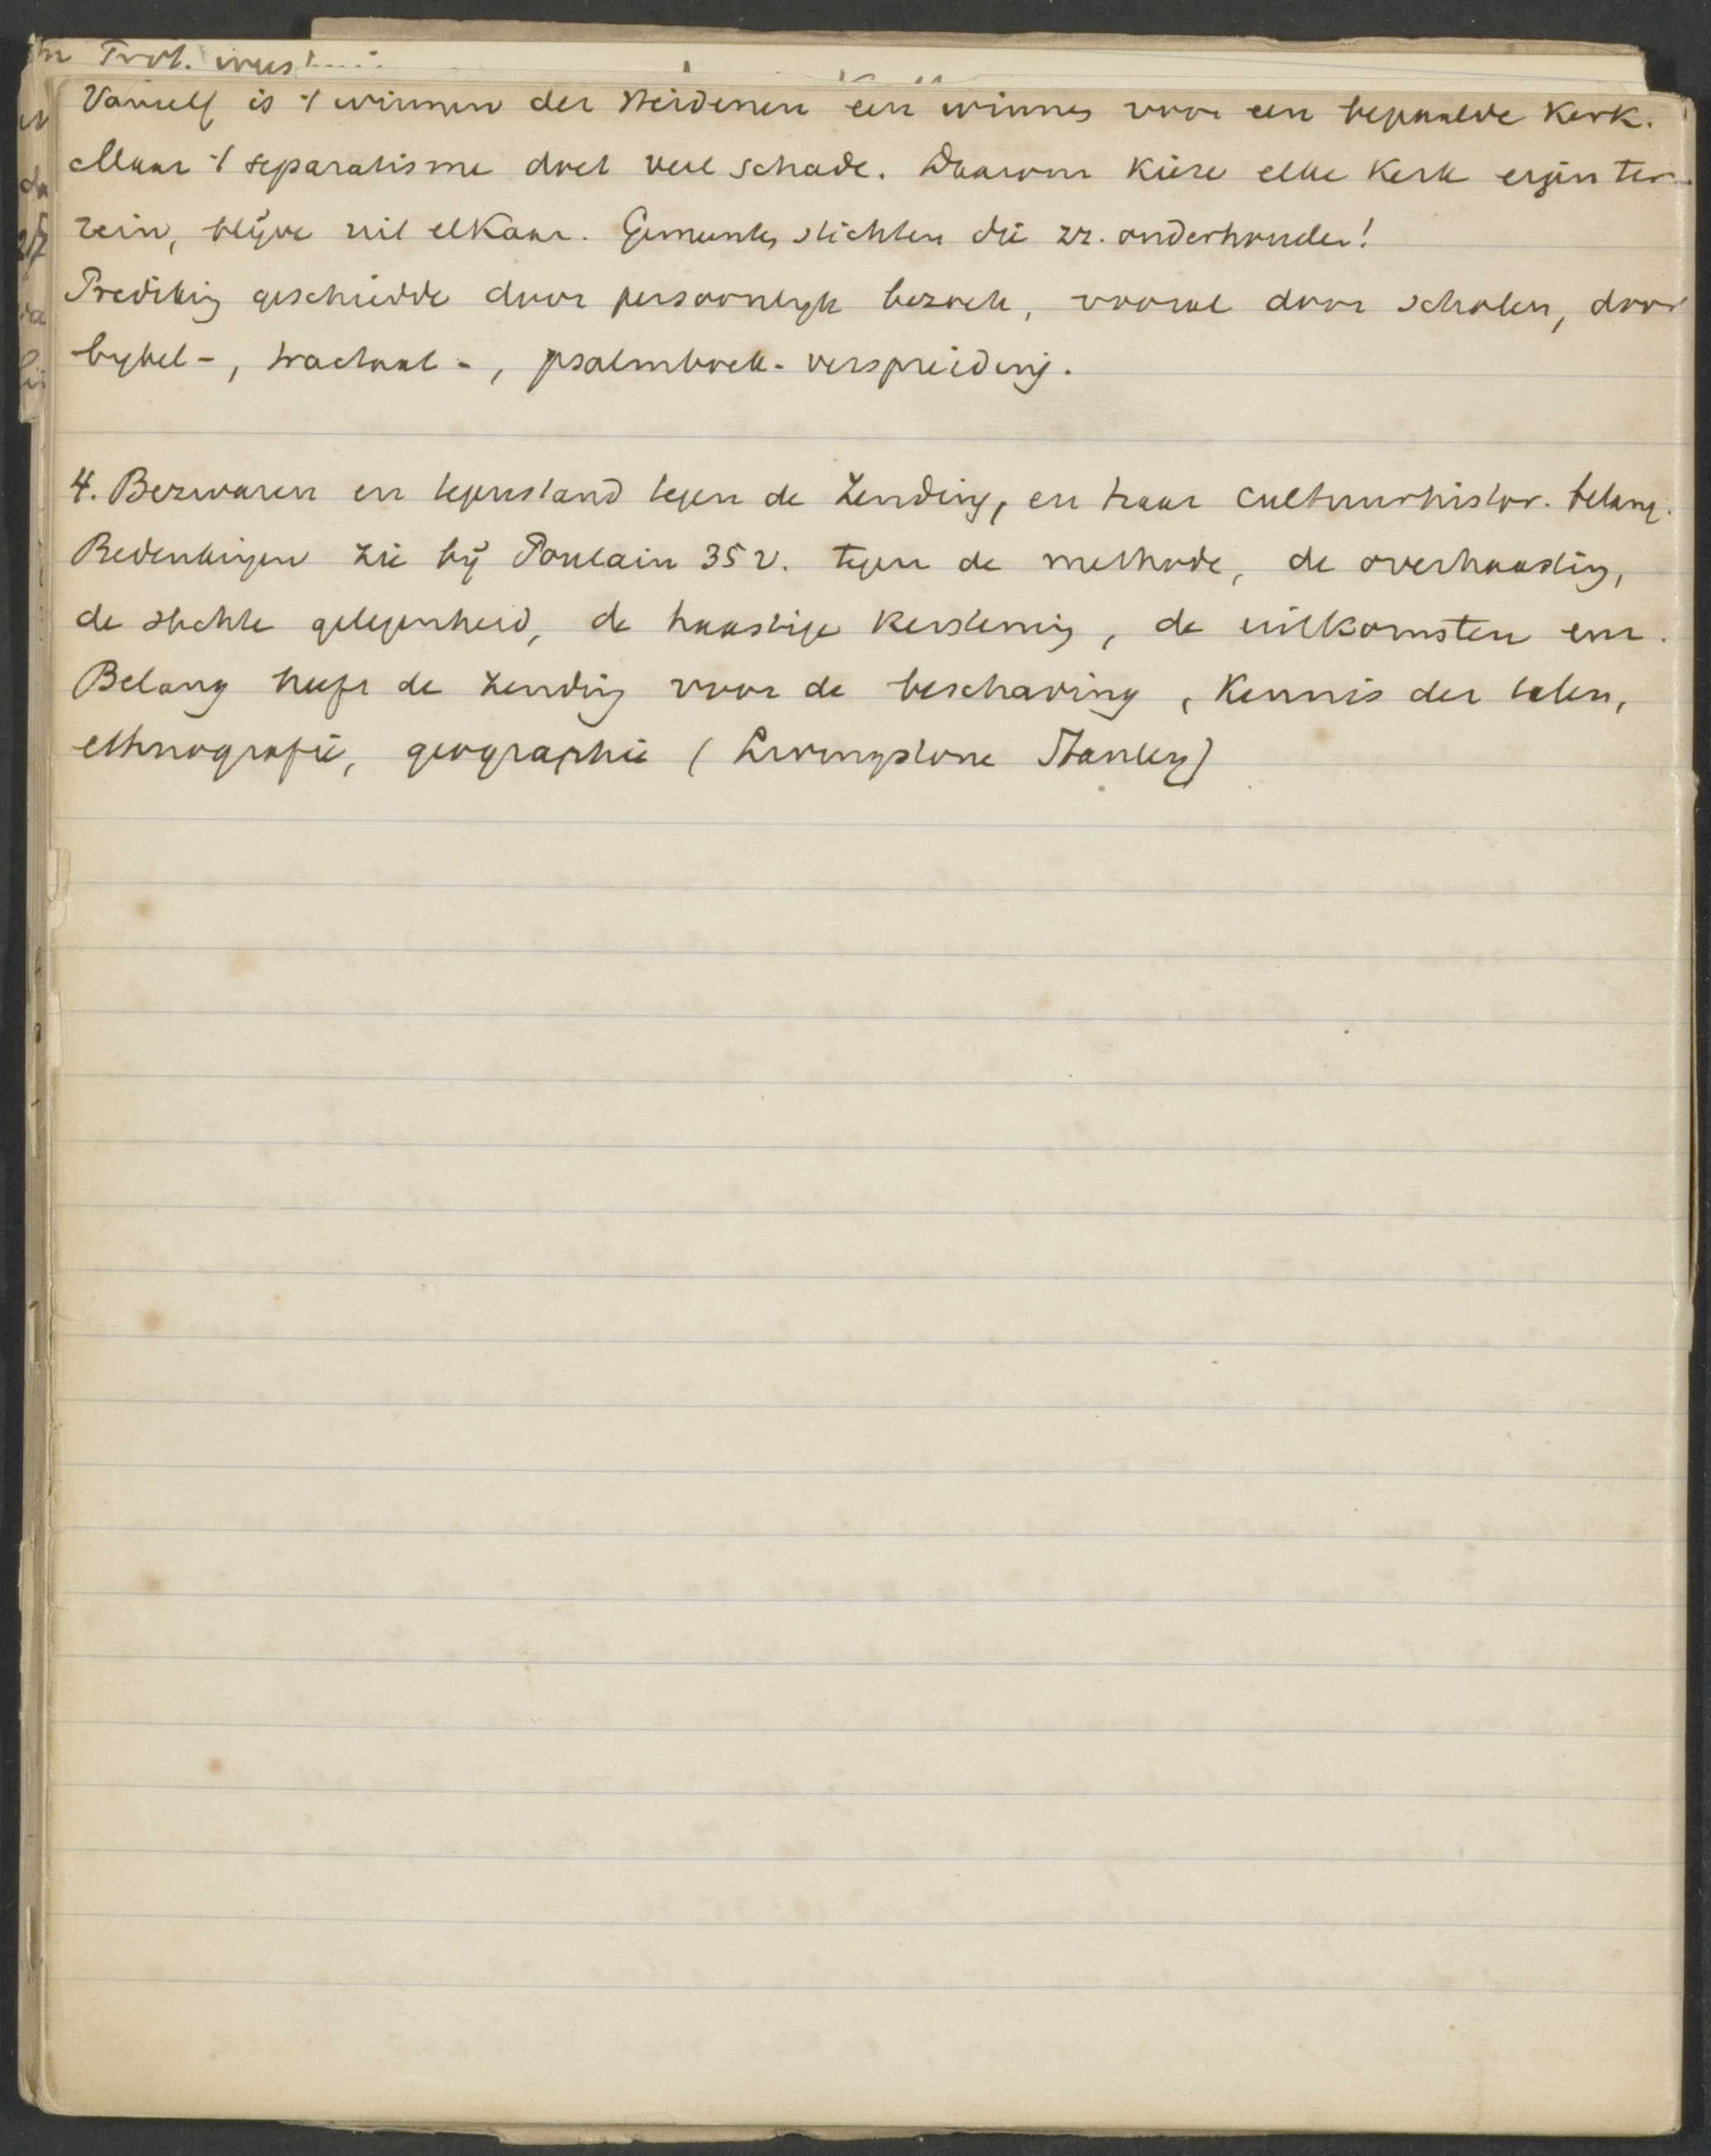 Vanself is 't winnen der Heidenen een winnen voor een bepaalde Kerk.
Maar 't separatisme doet veel schade. Daarom kieze elke Kerk eigen ter-
rein, blijve uit elkaar. Gemeentes stichten die zz. onderhouden!
Prediking geschiedde door persoonlyk bezoek, vooral door scholen, door
bybel-, tractaat-, psalmboek-verspreiding.
4. Bezwaren en tegenstand tegen de Zending, en haar cultuurhistor. belang.
Bedenkingen zie bij Poulain 35 v. tegen de methode, de overhaasting,
de slechte gelegenheid, de haastige kerstening, de uitkomsten enz.
Belang heeft de Zending voor de beschaving, Kennis der talen,
ethnografie, geographie (Livingstone Stanley)